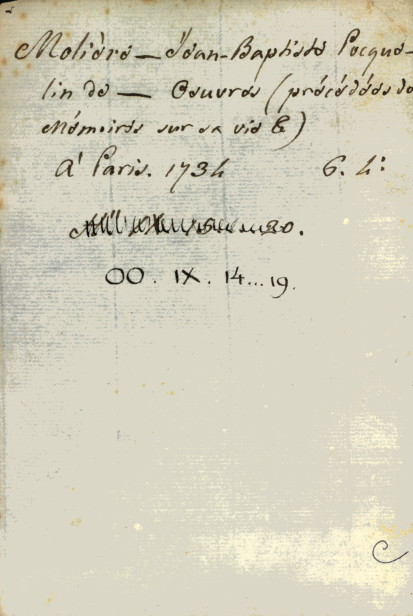 Molière — Jean-Baptiste Pocque-
lin de — Oeuvres (précédées de
Mémoires sur sa vie &)
A' Paris. 1734 6. 4:
OO. IX. 14...19.